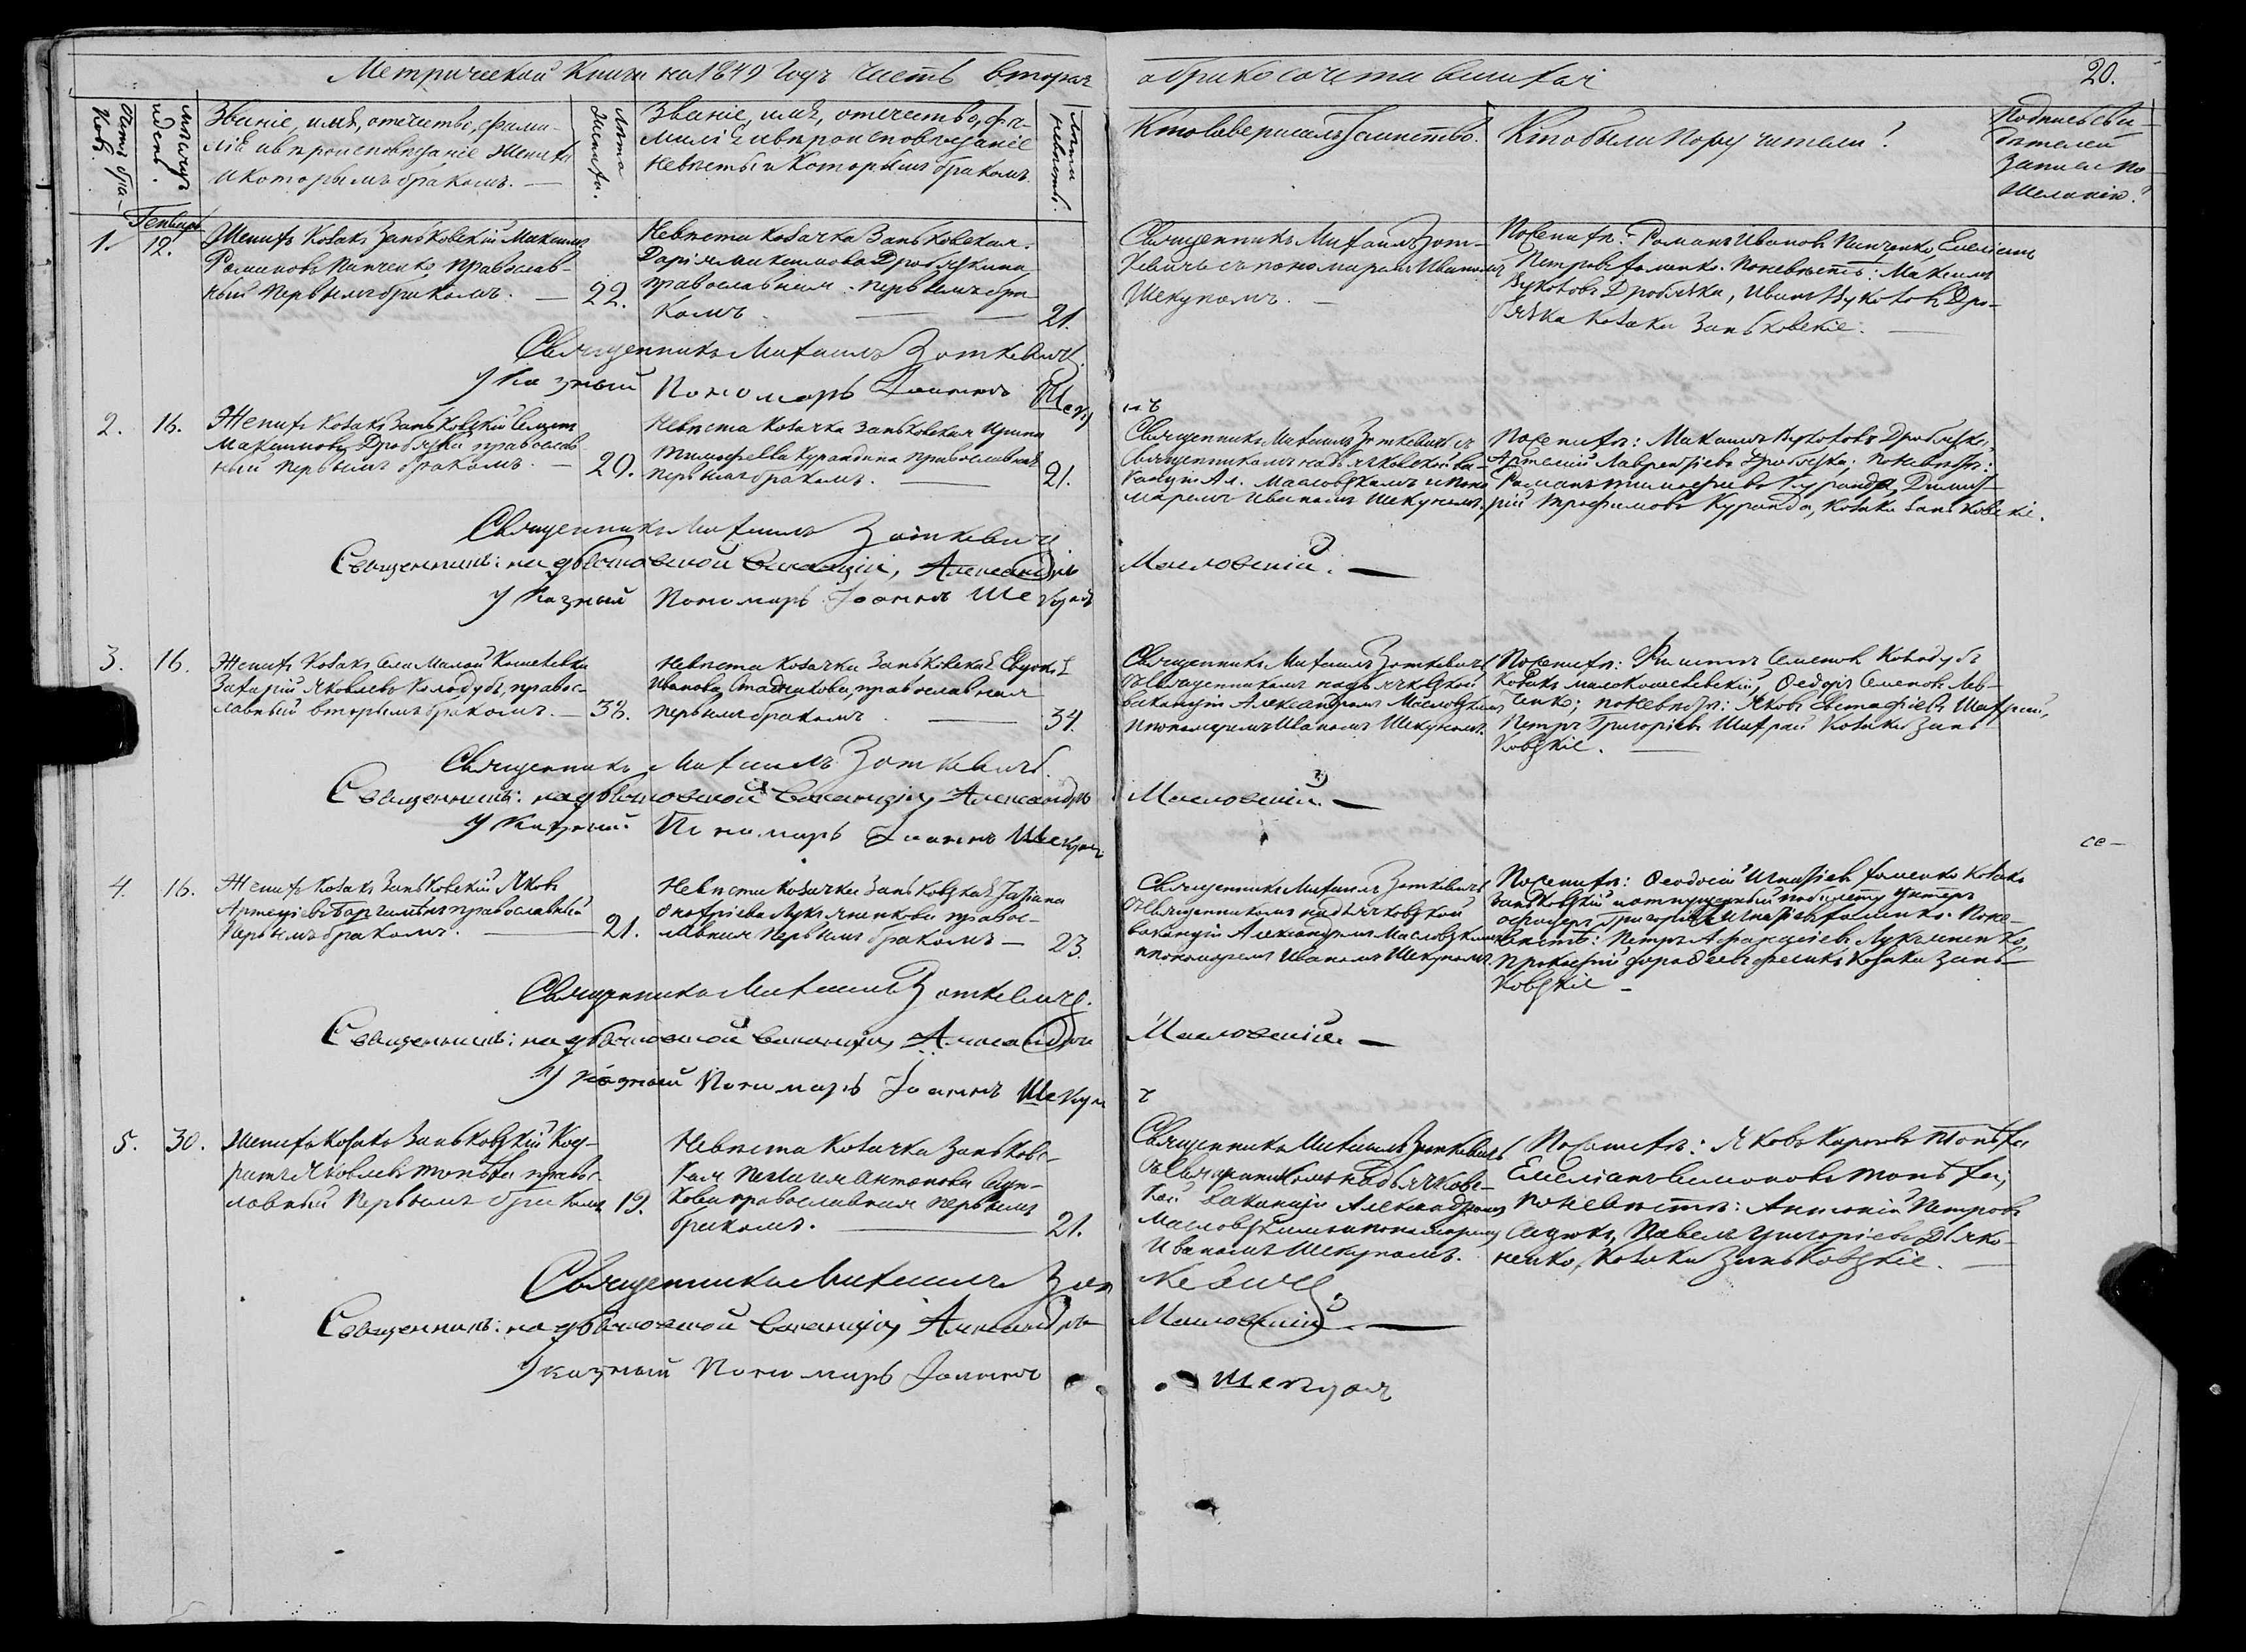 Метрической Книги на 1849 Годъ часть вторая
о бракосочетавшихся
20.
Звание, имя, отечество, фами-
лія и вѣроисповѣданіе жениха
и которымъ бракомъ. —
Лѣта жениха.
Званіе, имя, отечество, фа-
милія и вѣроисповѣданіе
невѣсты и которымъ бракомъ.
Лѣта невѣсты.
Кто совершалъ Таинство.
Кто были Поручители?
Подпись сви-
дѣтелей
записи по
желанію?
Генварь
1.
12.
Женихъ Козакъ Заньковскій Максимъ
Романовъ Панченко, православ-
ный первымъ бракомъ. —
22.
Невѣста козачка Заньковская.
Дарія Максимова Дроблзкина
православная. первымъ бра-
комъ. —
21.
Священникъ Михаилъ Зот-
кевичъ съ пономаремъ Иваномъ
Шекуномъ. —
По женихѣ: Романъ Ивановъ Панченко, Емеліанъ
Петровъ Фоменко. по невѣстѣ: Максимъ
Дробязка, Иванъ Дро-
бязка козаки Заньковскіе.
Священникъ Михаилъ Зоткевичъ.
Указный Пономарь Іоаннъ Шеку
нъ
2.
16.
Женихъ Козакъ Заньковскій
Максимовъ Дробязка православ-
ный первымъ бракомъ. —
20.
Невѣста козачка Заньковская Ирина
Тимофеева Курандина православная
первымъ бракомъ. —
21.
Священникъ Михаилъ Зоткевичъ съ
Священникомъ на дьячковской ва-
кации Ал. Масловскимъ и поно-
маремъ Иваномъ Шекуномъ.
По женихѣ: Максимъ Дробязка,
Артемій Лаврентіевъ Дробязка; по невѣстѣ:
Романъ Тимофеевъ Куранда, Дмит-
рій Трофимовъ Куранда, козаки Заньковскіе.
Священникъ Михаилъ Зоткевичъ
Священникъ: на дьячковской вакансіи, Александръ
Масловскій. —
Указный Пономарь Іоаннъ Шекунъ
3.
16.
Женихъ Козакъ села Малой Кошелевки
Захарій Яковлевъ Колодубъ, правос-
лавный вторымъ бракомъ. —
38.
Невѣста козачка Заньковская Евдокія
Иванова Стадникова, православная
первымъ бракомъ. —
34.
Священникъ Михаилъ Зоткевичъ
съ священникомъ на дьячковской
вакансіи Александромъ Масловскимъ
и пономаремъ Иваномъ Шекуномъ.
По женихѣ: Филиппъ Семеновъ Колодубъ
козакъ малокошелевскій, Федоръ Семеновъ Лев-
ченко; по невѣстѣ: Яковъ Евстафіевъ Шафран,
Петръ Григоріевъ Шафран козаки Зань-
ковскіе. —
Священникъ Михаилъ Зоткевичъ.
Священникъ: на дьячковской вакансіи, Александръ
Масловскій. —
Указный Пономарь Іоаннъ Шекунъ
се —
4.
16.
Женихъ Козакъ Заньковскій Яковъ
православный
первымъ бракомъ. —
21.
Невѣста козачка Заньковская Татіана
Онофріева Лукьяненкова правос-
лавная первымъ бракомъ —
23.
Священникъ Михаилъ Зоткевичъ
съ священникомъ на дьячковской
вакансіи Александромъ Масловскимъ
и пономаремъ Иваномъ Шекуномъ.
По женихѣ: Феодосій Игнатіевъ Фоменко козакъ
Заньковскій и отпущенный по билету унтеръ
офицеръ Григорій Игнатіевъ Фоменко. По не-
вѣстѣ: Петръ Афанасіевъ Лукьяненко,
Прокофій козаки Зань-
ковскіе —
Священникъ Михаилъ Зоткевичъ.
Священникъ: на дьячковской вакансіи, Александръ
Масловскій. —
Указный Пономарь Іоаннъ Шекун
ъ
5.
30.
Женихъ Козакъ Заньковскій Код-
ратъ Яковлевъ Тонфа правос-
лавный первымъ бракомъ
19.
Невѣста козачка Заньковс-
кая Пелагея Антонова Сидю-
кова православная первымъ
бракомъ. —
21.
Священникъ Михаилъ Зоткевичъ
съ священникомъ на дьячковс-
кой вакансіи Александромъ
Масловскимъ и пономаремъ
Иваномъ Шекуномъ.
По женихѣ: Яковъ Карповъ Тонфа
Емеліанъ Симоновъ Тонфа,
по невѣстѣ: Антоній Петровъ
Павелъ Григоріевъ Дьяко-
ненко, козаки Заньковскіе. —
Священникъ Михаилъ Зот
кевичъ
Священникъ: на дьячковской вакансіи, Александръ
Масловскій. —
Указный Пономарь Іоаннъ
Шекунъ